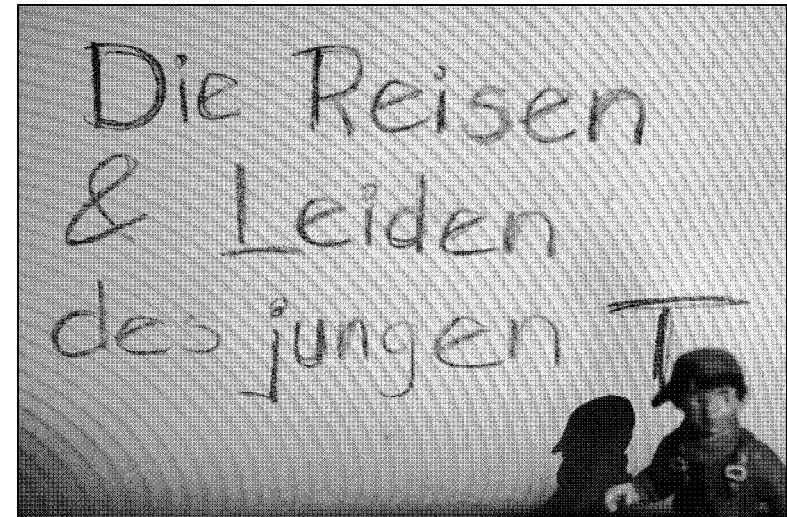 Die Reisen
& Leiden
des jungen T